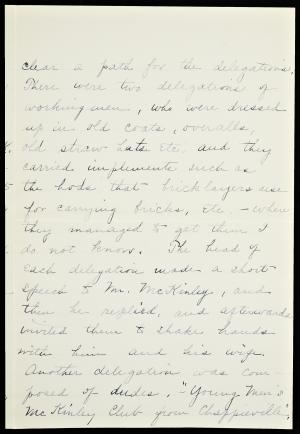 clear a path for the delegations.
There were two delegations of
workingmen, who were dressed
up in old coats, overalls,
old straw hats etc. and they
carried implements such as
the hods that bricklayers use
for carrying bricks, etc. - where
they managed to get them I
do not know. The head of
each delegation made a short
speech to Mr. McKinley, and
then he replied, and afterwards
invited them to shake hands
with him and his wife.
Another delegation was com-
posed of dudes, "Young Men's
McKinley Club from Chappieville",